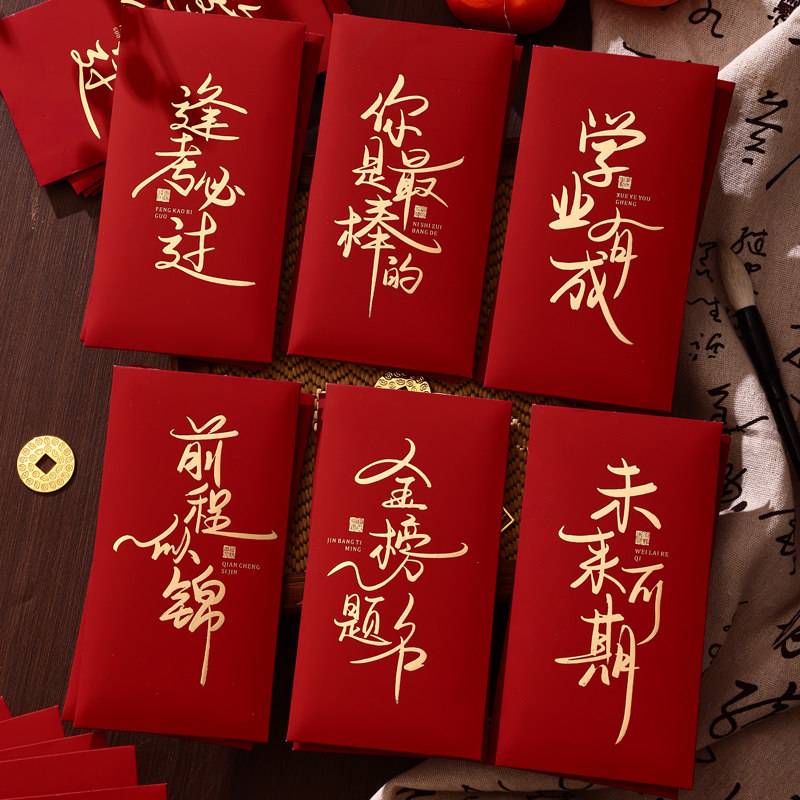 逢考必过
FENG KAO BI
GUO
你是最棒的
NI SHI ZUI
BANG DE
学业有成
XUE YE YOU
CHENG
前程似锦
QIAN CHENG
SI JIN
金榜题名
JIN BANG TI
MING
未来可期
WEI LAI KE
QI